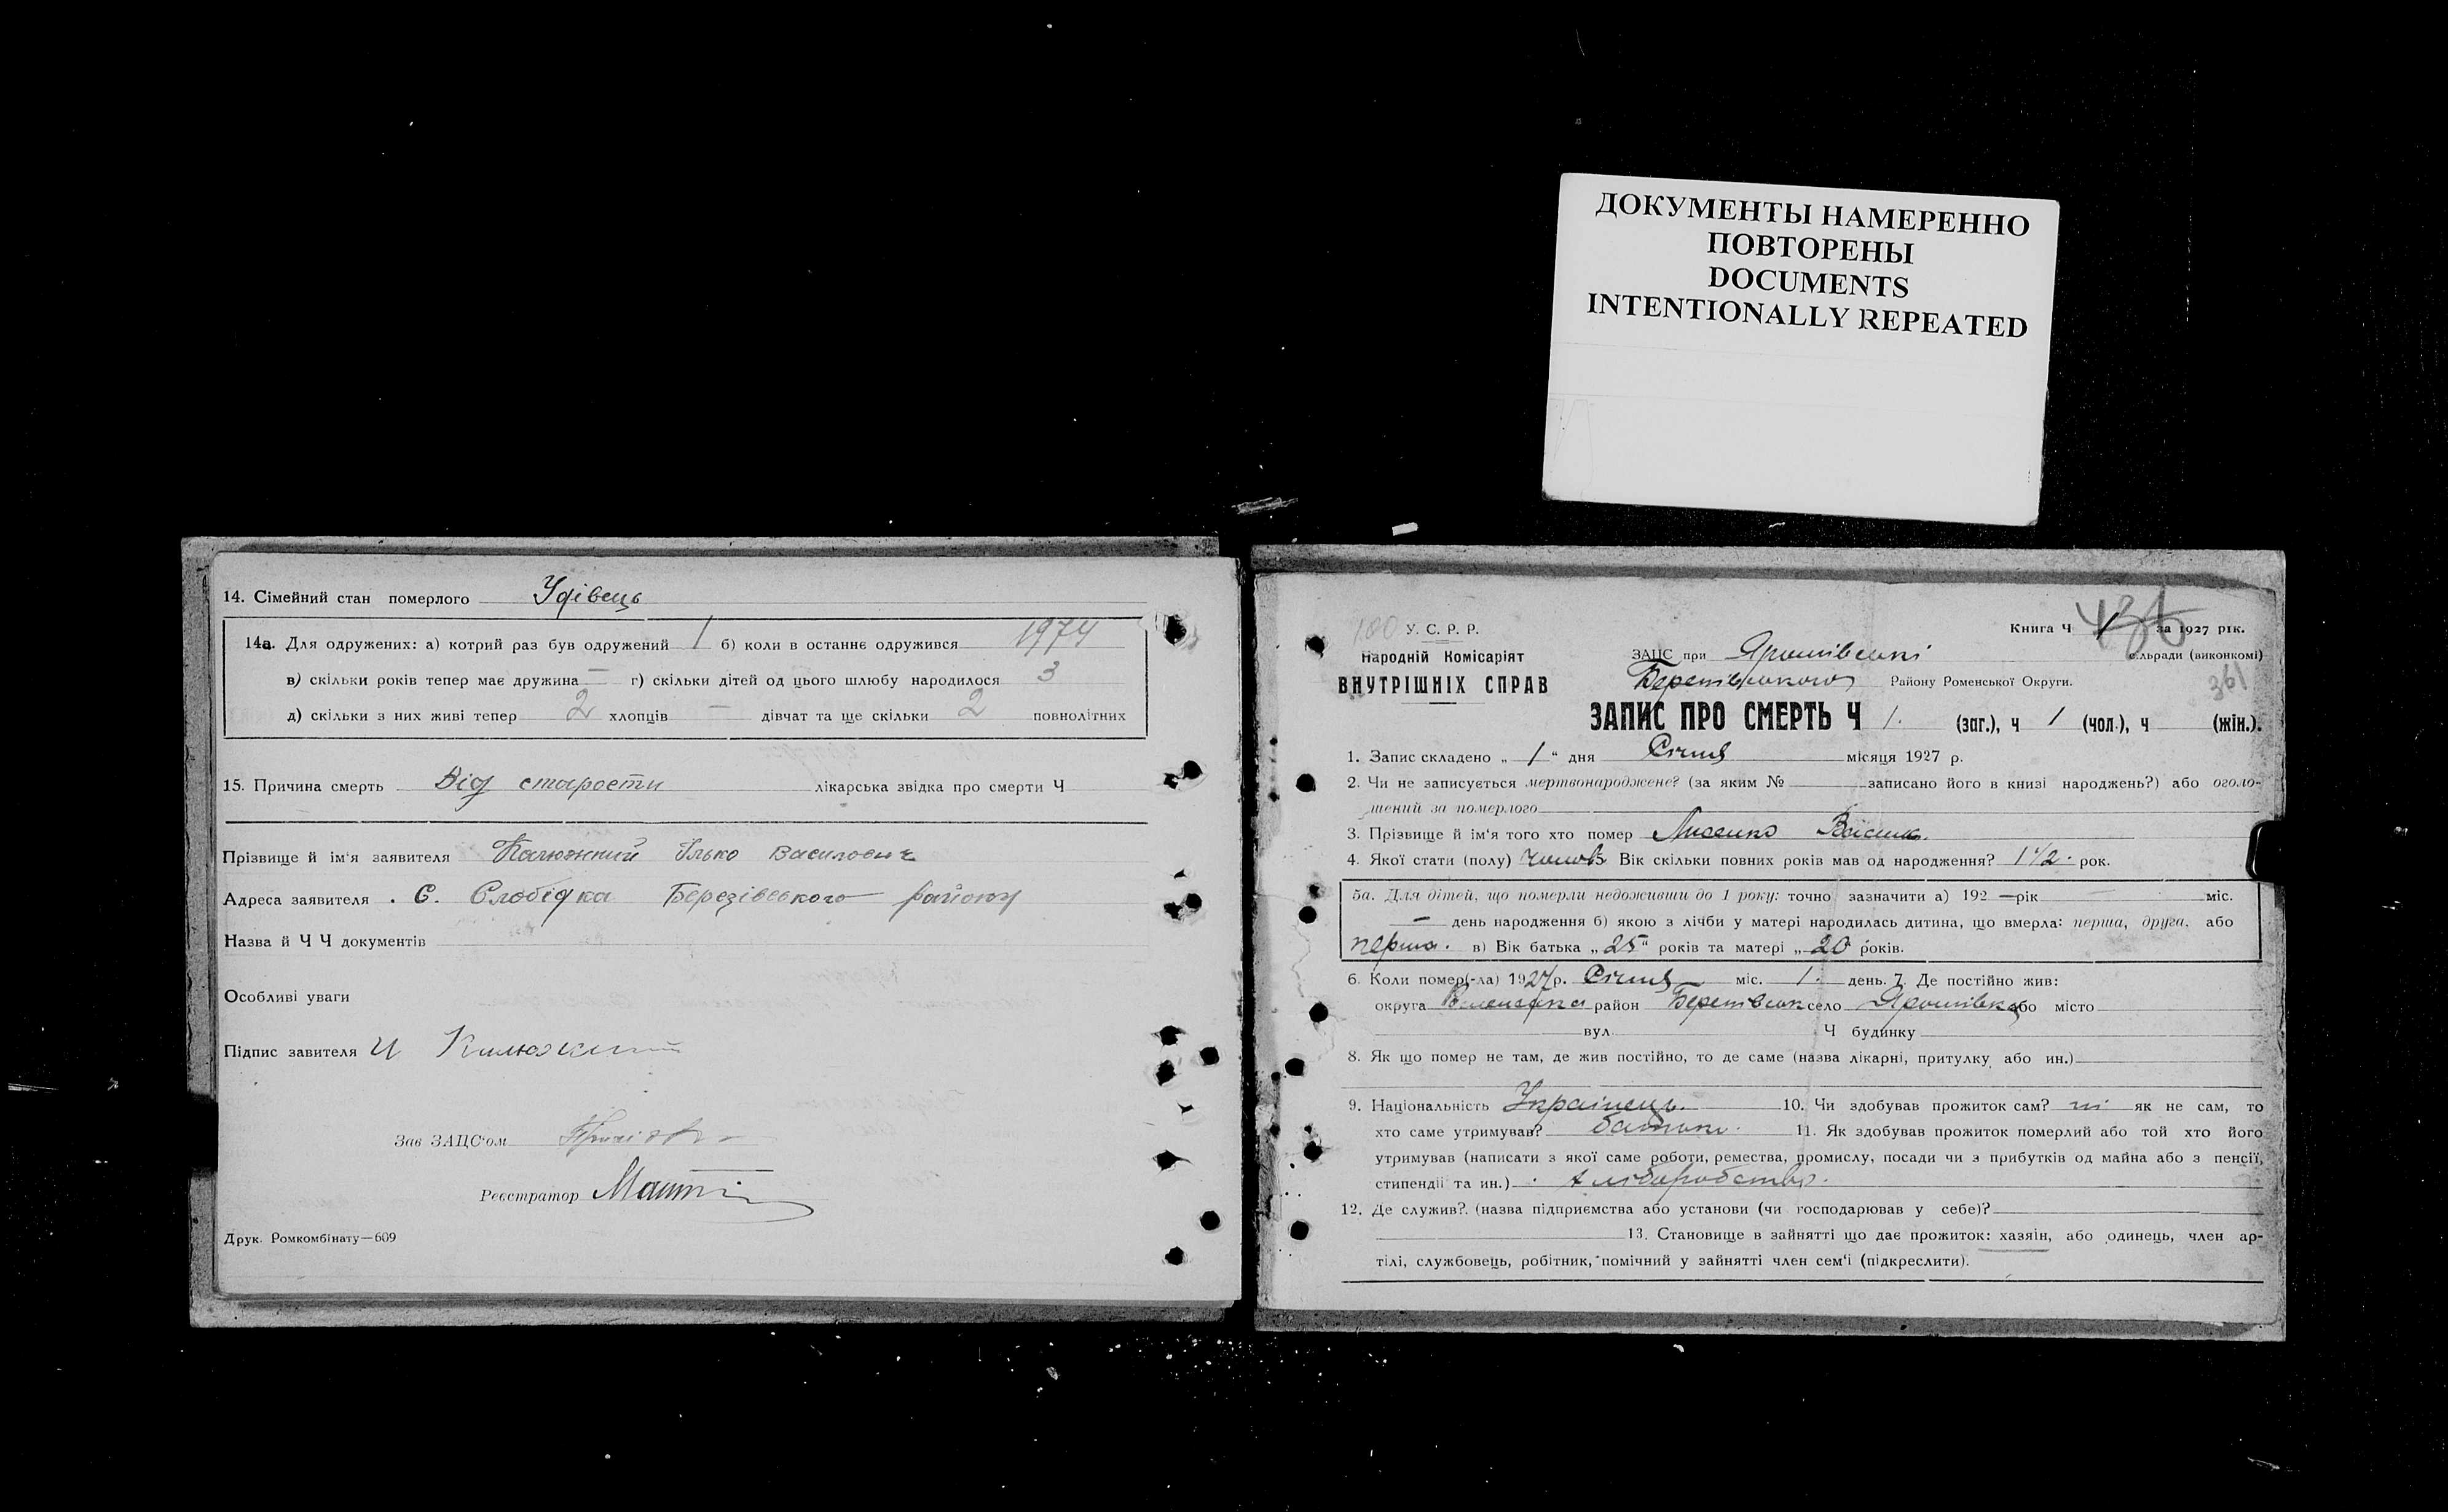 ДОКУМЕНТЫ НАМЕРЕННО
ПОВТОРЕНЫ
DOCUMENTS
INTENTIONALLY REPEATED
14. Сімейний стан померлого Удівець
14а. Для одружених: а) котрий раз був одружений 1 б) коли в останнє одружився 1974
в) скільки років тепер має дружина — г) скільки дітей од цього шлюбу народилося 3
д) скільки з них живі тепер 2 хлопців — дівчат та ще скільки 2 повнолітних
15. Причина смерть Від старости лікарська звідка про смерти Ч
Прізвище й ім‘я заявителя Калюжний Ілько Василович
Адреса заявителя . С. Слобідка Березівського району
Назва й Ч Ч документів
Особливі уваги
Підпис завителя И Калюжний
Зав ЗАЦС‘ом
Реєстратор
Друк. Ромкомбінату—609
100 У. С. Р. Р.
Народній Комісаріят
ВНУТРІШНІХ СПРАВ
Книга Ч 1 за 1927 рік.
ЗАЦС при Ярошівські сільради (виконкомі)
Району Роменської Округи.
361
ЗАПИС ПРО СМЕРТЬ Ч 1. (заг.), ч 1 (чол.), ч (жін.).
1. Запис складено „ 1 “ дня Січня місяця 1927 р.
2. Чи не записується мертвонароджене? (за яким № записано його в книзі народжень?) або оголо-
шений за померлого
3. Прізвище й ім‘я того хто помер Лисенко
4. Якої стати (полу) Вік скільки повних років мав од народження? 1 1/2 . рок.
5а. Для дітей, що померли недоживши до 1 року: точно зазначити а) 192 — рік — міс.
— день народження б) якою з лічби у матері народилась дитина, що вмерла: перша, друга, або
перша. в) Вік батька „ 25 “ років та матері „ 20 років.
6. Коли помер(-ла) 1927 р. Січня міс. 1. день. 7. Де постійно жив:
округа район село Ярошівка або місто
вул Ч будинку
8. Як що помер не там, де жив постійно, то де саме (назва лікарні, притулку або ин.)
9. Національність Українець. 10. Чи здобував прожиток сам? ні як не сам, то
хто саме утримував? батьки. 11. Як здобував прожиток померлий або той хто його
утримував (написати з якої саме роботи, ремества, промислу, посади чи з прибутків од майна або з пенсії,
стипендії та ин.) хліборобство.
12. Де служив? (назва підприємства або установи (чи господарював у себе)?
13. Становище в зайнятті що дає прожиток: хазяін, або одинець, член ар-
тілі, службовець, робітник, помічний у зайнятті член сем‘ї (підкреслити).